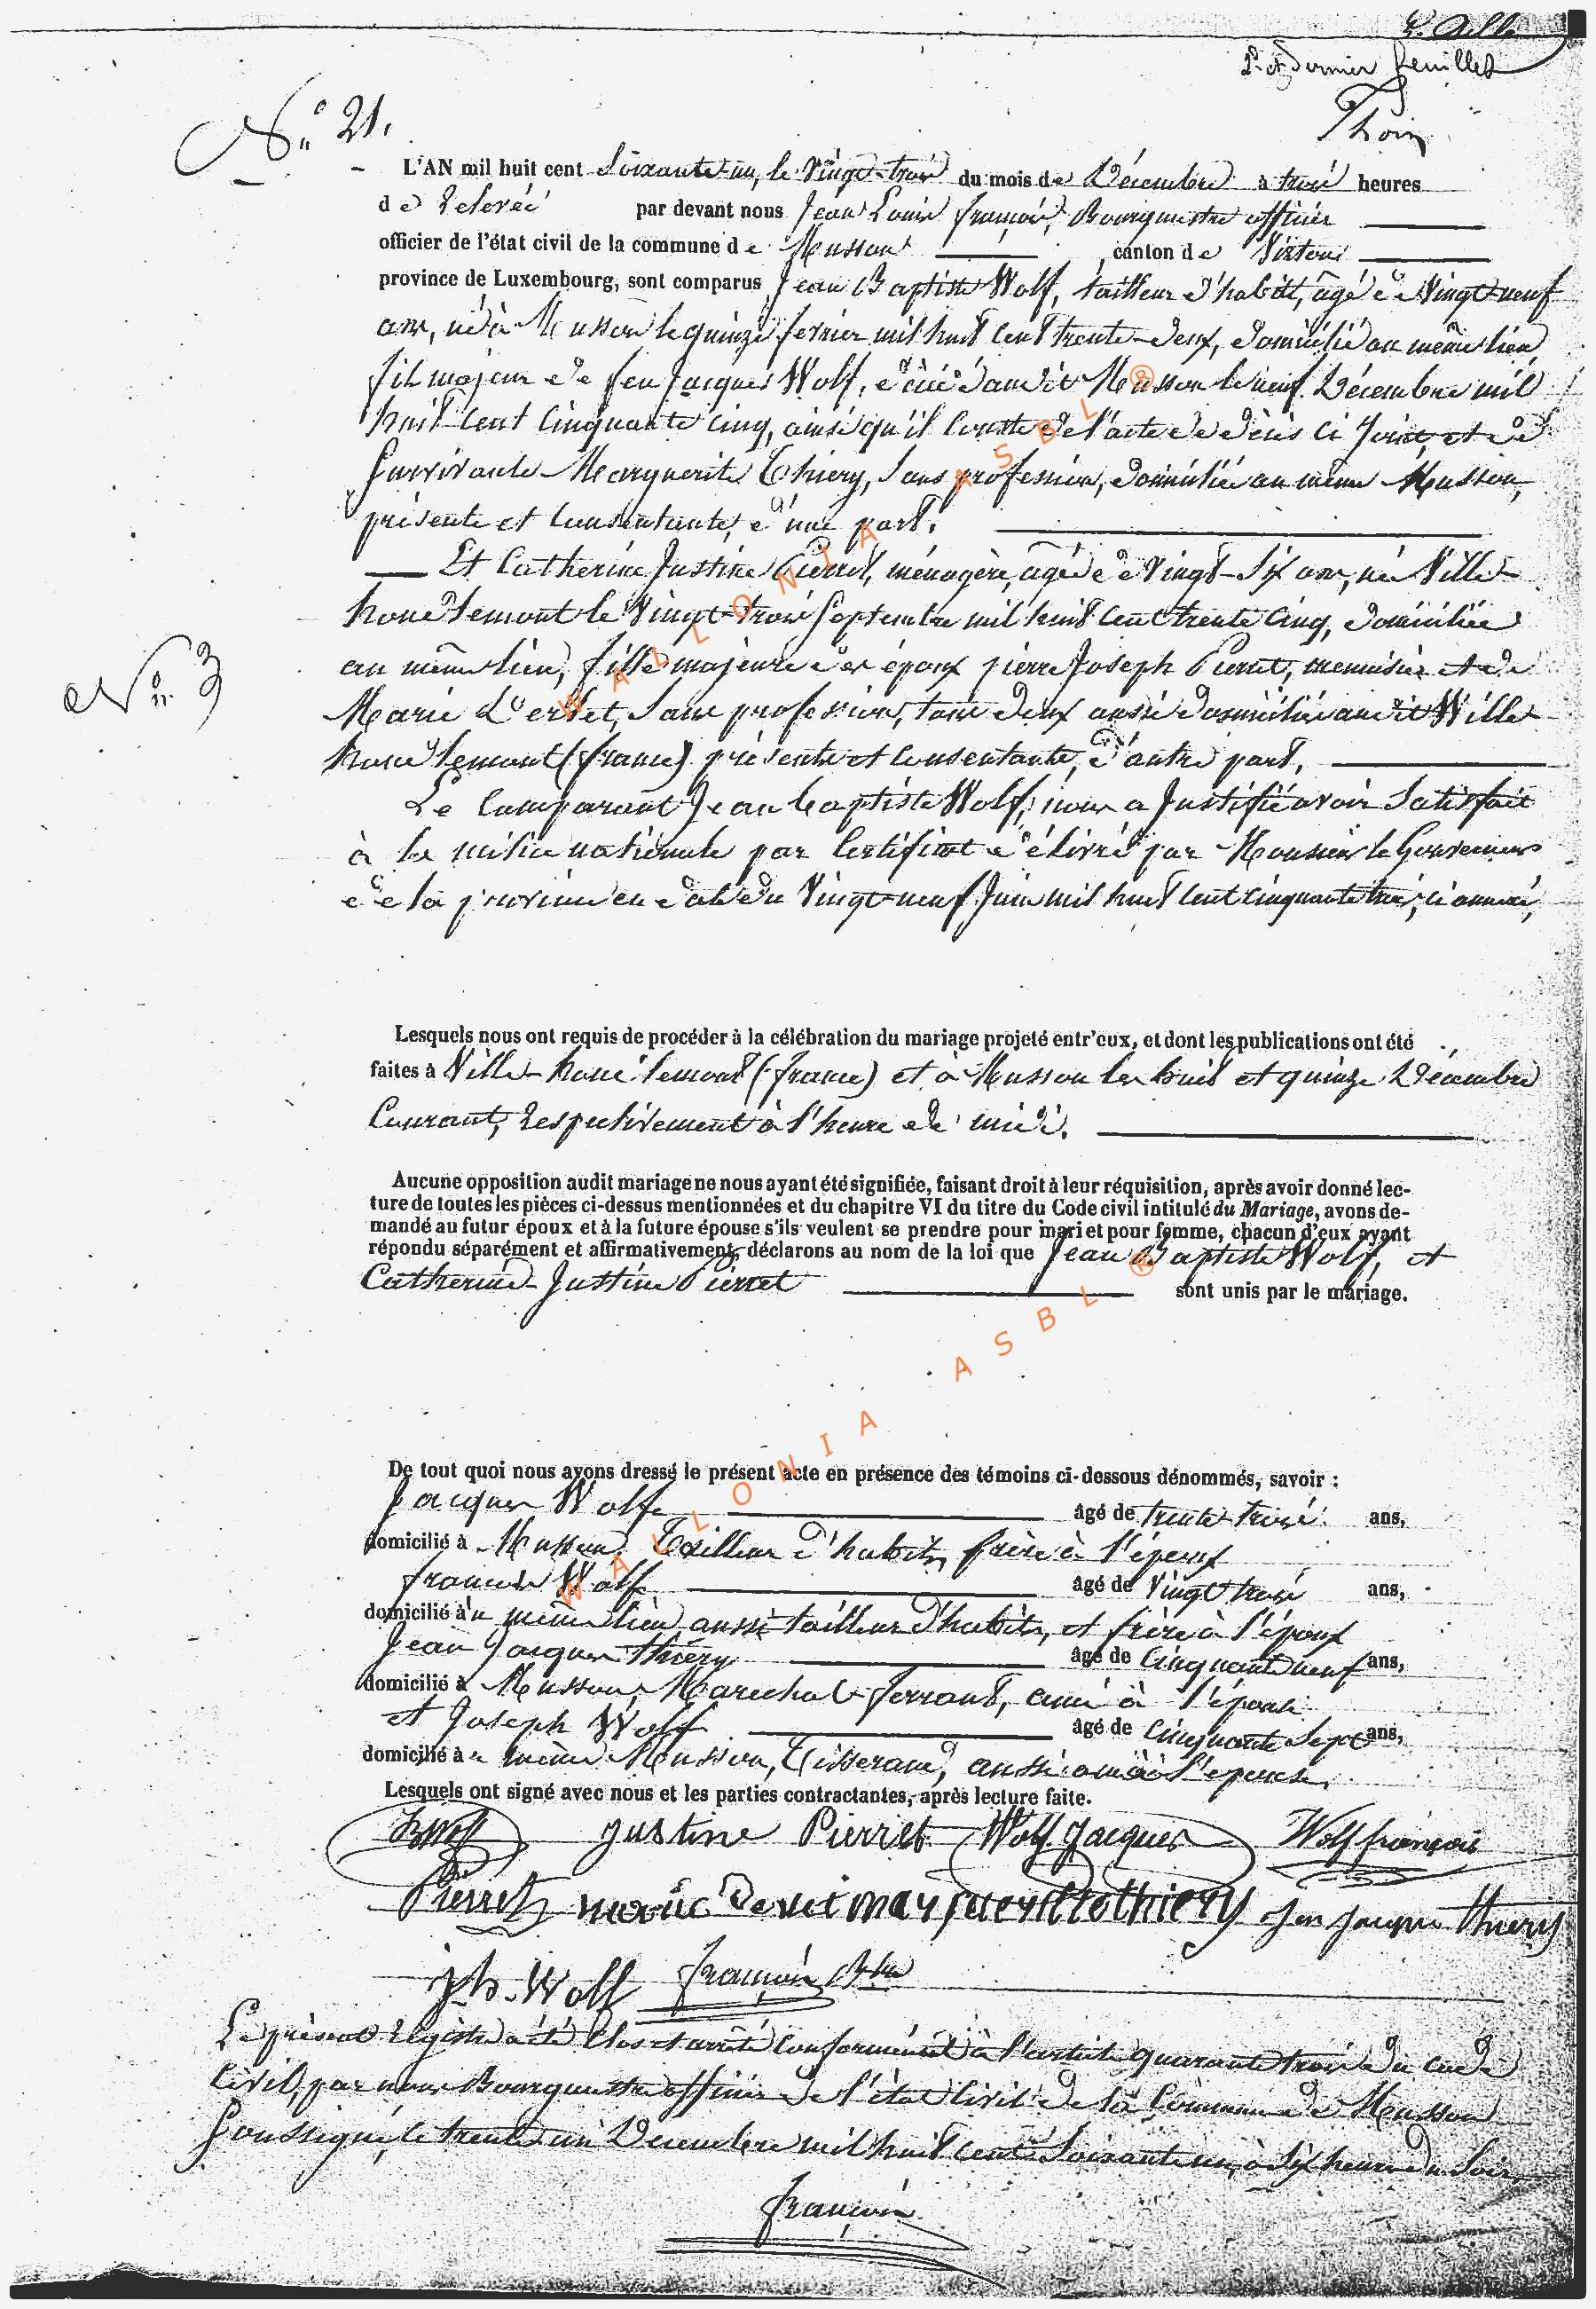 2e et dernier feuillet
Thoin
No 21.
L'AN mil huit cent Soixante-un, le Vingt-trois du mois de Décembre à trois heures
de Relevée par devant nous Jean Louis françois, Bourgmestre officier
officier de l'état civil de la commune de Musson canton de Virton
province de Luxembourg, sont comparus Jean Baptiste Wolf, tailleur d'habits, âgé de Vingt-neuf
ans, né à Musson le quinze fevrier mil huit cent trente-deux, domicilié au même lieu
fils majeur de feu Jacques Wolf, décédé audit Musson le neuf Décembre mil
huit cent Cinquante cinq, ainsi qu'il Conste de l'acte de décès ci Joint, et de
Survivante Marguerite Thiery, Sans profession, domiciliée au même Musson,
présente et Consentante, d'une part.
Et Catherine Justine Pierret, ménagère, âgée de Vingt-Six ans, née Ville-
houdlemont le Vingt-trois Septembre mil huit cent trente Cinq, domiciliée
No 3
au même lieu, fille majeure des époux pierre Joseph Pierret, menuisier et de
Marie Dervet, Sans profession, tous deux aussi domiciliés audit Ville-
houdlemont (france) présents et Consentants, d'autre part.
Le Comparant Jean baptiste Wolf, nous a Justifié avoir Satisfait
à la milice nationale par Certificat délivré par Monsieur le Gouverneur
de la province en date du Vingt-neuf Juin mil huit cent cinquante trois, ci annexé,
Lesquels nous ont requis de procéder à la célébration du mariage projeté entr'eux, et dont les publications ont été
faites à Ville-houdlemont (france) et à Musson les huit et quinze Décembre
Courant, Respectivement à l'heure de midi.
Aucune opposition audit mariage ne nous ayant été signifiée, faisant droit à leur réquisition, après avoir donné lec-
ture de toutes les pièces ci-dessus mentionnées et du chapitre VI du titre du Code civil intitulé du Mariage, avons de-
mandé au futur époux et à la future épouse s'ils veulent se prendre pour mari et pour femme, chacun d'eux ayant
répondu séparément et affirmativement, déclarons au nom de la loi que Jean Baptiste Wolf, et
Catherine Justine Pierret sont unis par le mariage.
De tout quoi nous avons dressé le présent acte en présence des témoins ci-dessous dénommés, savoir :
Jacques Wolf âgé de trente-trois ans,
domicilié à Musson, Tailleur d'habits, frère à l'époux
francois Wolf âgé de Vingt trois ans,
domicilié au même lieu aussi tailleur d'habits, et frère à l'époux
Jean Jacques thiery âgé de Cinquante neuf ans,
domicilié à Musson, Marechal-ferrant, ami à l'épouse
et Joseph Wolf âgé de Cinquante Sept ans,
domicilié au même Musson, Tisserand, aussi ami à l'épouse.
Lesquels ont signé avec nous et les parties contractantes, après lecture faite.
JBWolf Justine Pierret Wolf Jacques Wolf françois
Pierret marie Dervet Thiery Jean Jacques Thiery
jh. Wolf françois
Le présent Registre a été Clos et arrêté Conformément à l'article quarante trois du Code
Civil, par nous Bourgmestre officier de l'état Civil de la Commune de Musson
Soussigné, le trente un Décembre mil huit cent Soixante un, à Six heures du Soir.
françois
WALLONIA ASBL ®
WALLONIA ASBL ®